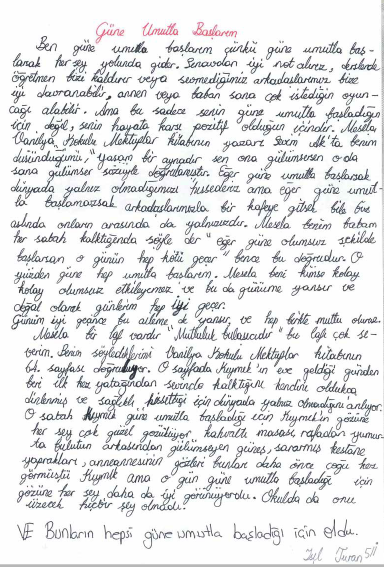 Güne Umutla Başlarım
Ben güne umutla başlarım çünkü güne umutla baş-
larsak her şey yolunda gider. Sınavdan iyi not alırız, derslerde
öğretmen bizi kaldırır veya sevmediğimiz arkadaşlarımız bize
iyi davranabilir, annen veya baban sana çok istediğin oyun-
cağı alabilir. Ama bu sadece senin güne umutla başladığın
için değil, senin hayata karşı pozitif olduğun içindir. Mesela
Vanilya Kokulu Mektuplar kitabının yazarı Sevim Ak'ta benim
düşündüğümü, "yaşam bir aynadır sen ona gülümsersen o da
sana gülümser" sözüyle doğrulamıştır. Eğer güne umutla başlarsak
dünyada yalnız olmadığımızı hissederiz ama eğer güne umut-
la başlamazsak arkadaşlarımızla bir kafeye gitsek bile biz
aslında onların arasında da yalnızızdır. Mesela benim babam
her sabah kalktığında şöyle der "eğer güne olumsuz şekilde
başlarsan o günün hep kötü geçer" bence bu doğrudur. O
yüzden güne hep umutla başlarım. Mesela beni kimse kolay
kolay olumsuz etkileyemez ve bu da günüme yansır ve
doğal olarak günlerim hep iyi geçer.
Günüm iyi geçince bu aileme de yansır, ve hep birlikte mutlu oluruz.
Mesela bir laf vardır "Mutluluk bulaşıcıdır" bu lafı çok se-
verim. Benim söylediklerimi Vanilya Kokulu Mektuplar kitabının
64. sayfası doğruluyor. O sayfada Kıymık'ın eve geldiği günden
beri ilk kez yatağından sevinçle kalktığını kendini oldukça
dinlenmiş ve sağlıklı hissettiği için dünyada yalnız olmadığını anlıyor.
O sabah Kıymık güne umutla başladığı için Kıymık'ın gözüne
her şey çok güzel gözüküyor, kahvaltı masası, rafadan yumur-
ta bulutun arkasından gülümseyen güneş, sararmış kestane
yaprakları, anneannesinin gözleri bunları daha önce çoğu kez
görmüştü Kıymık ama o gün güne umutla başladığı için
gözüne her şey daha da iyi görünüyordu. Okulda da onu
üzecek hiçbir şey olmadı.
VE Bunların hepsi güne umutla başladığı için oldu.
Turan 5/I